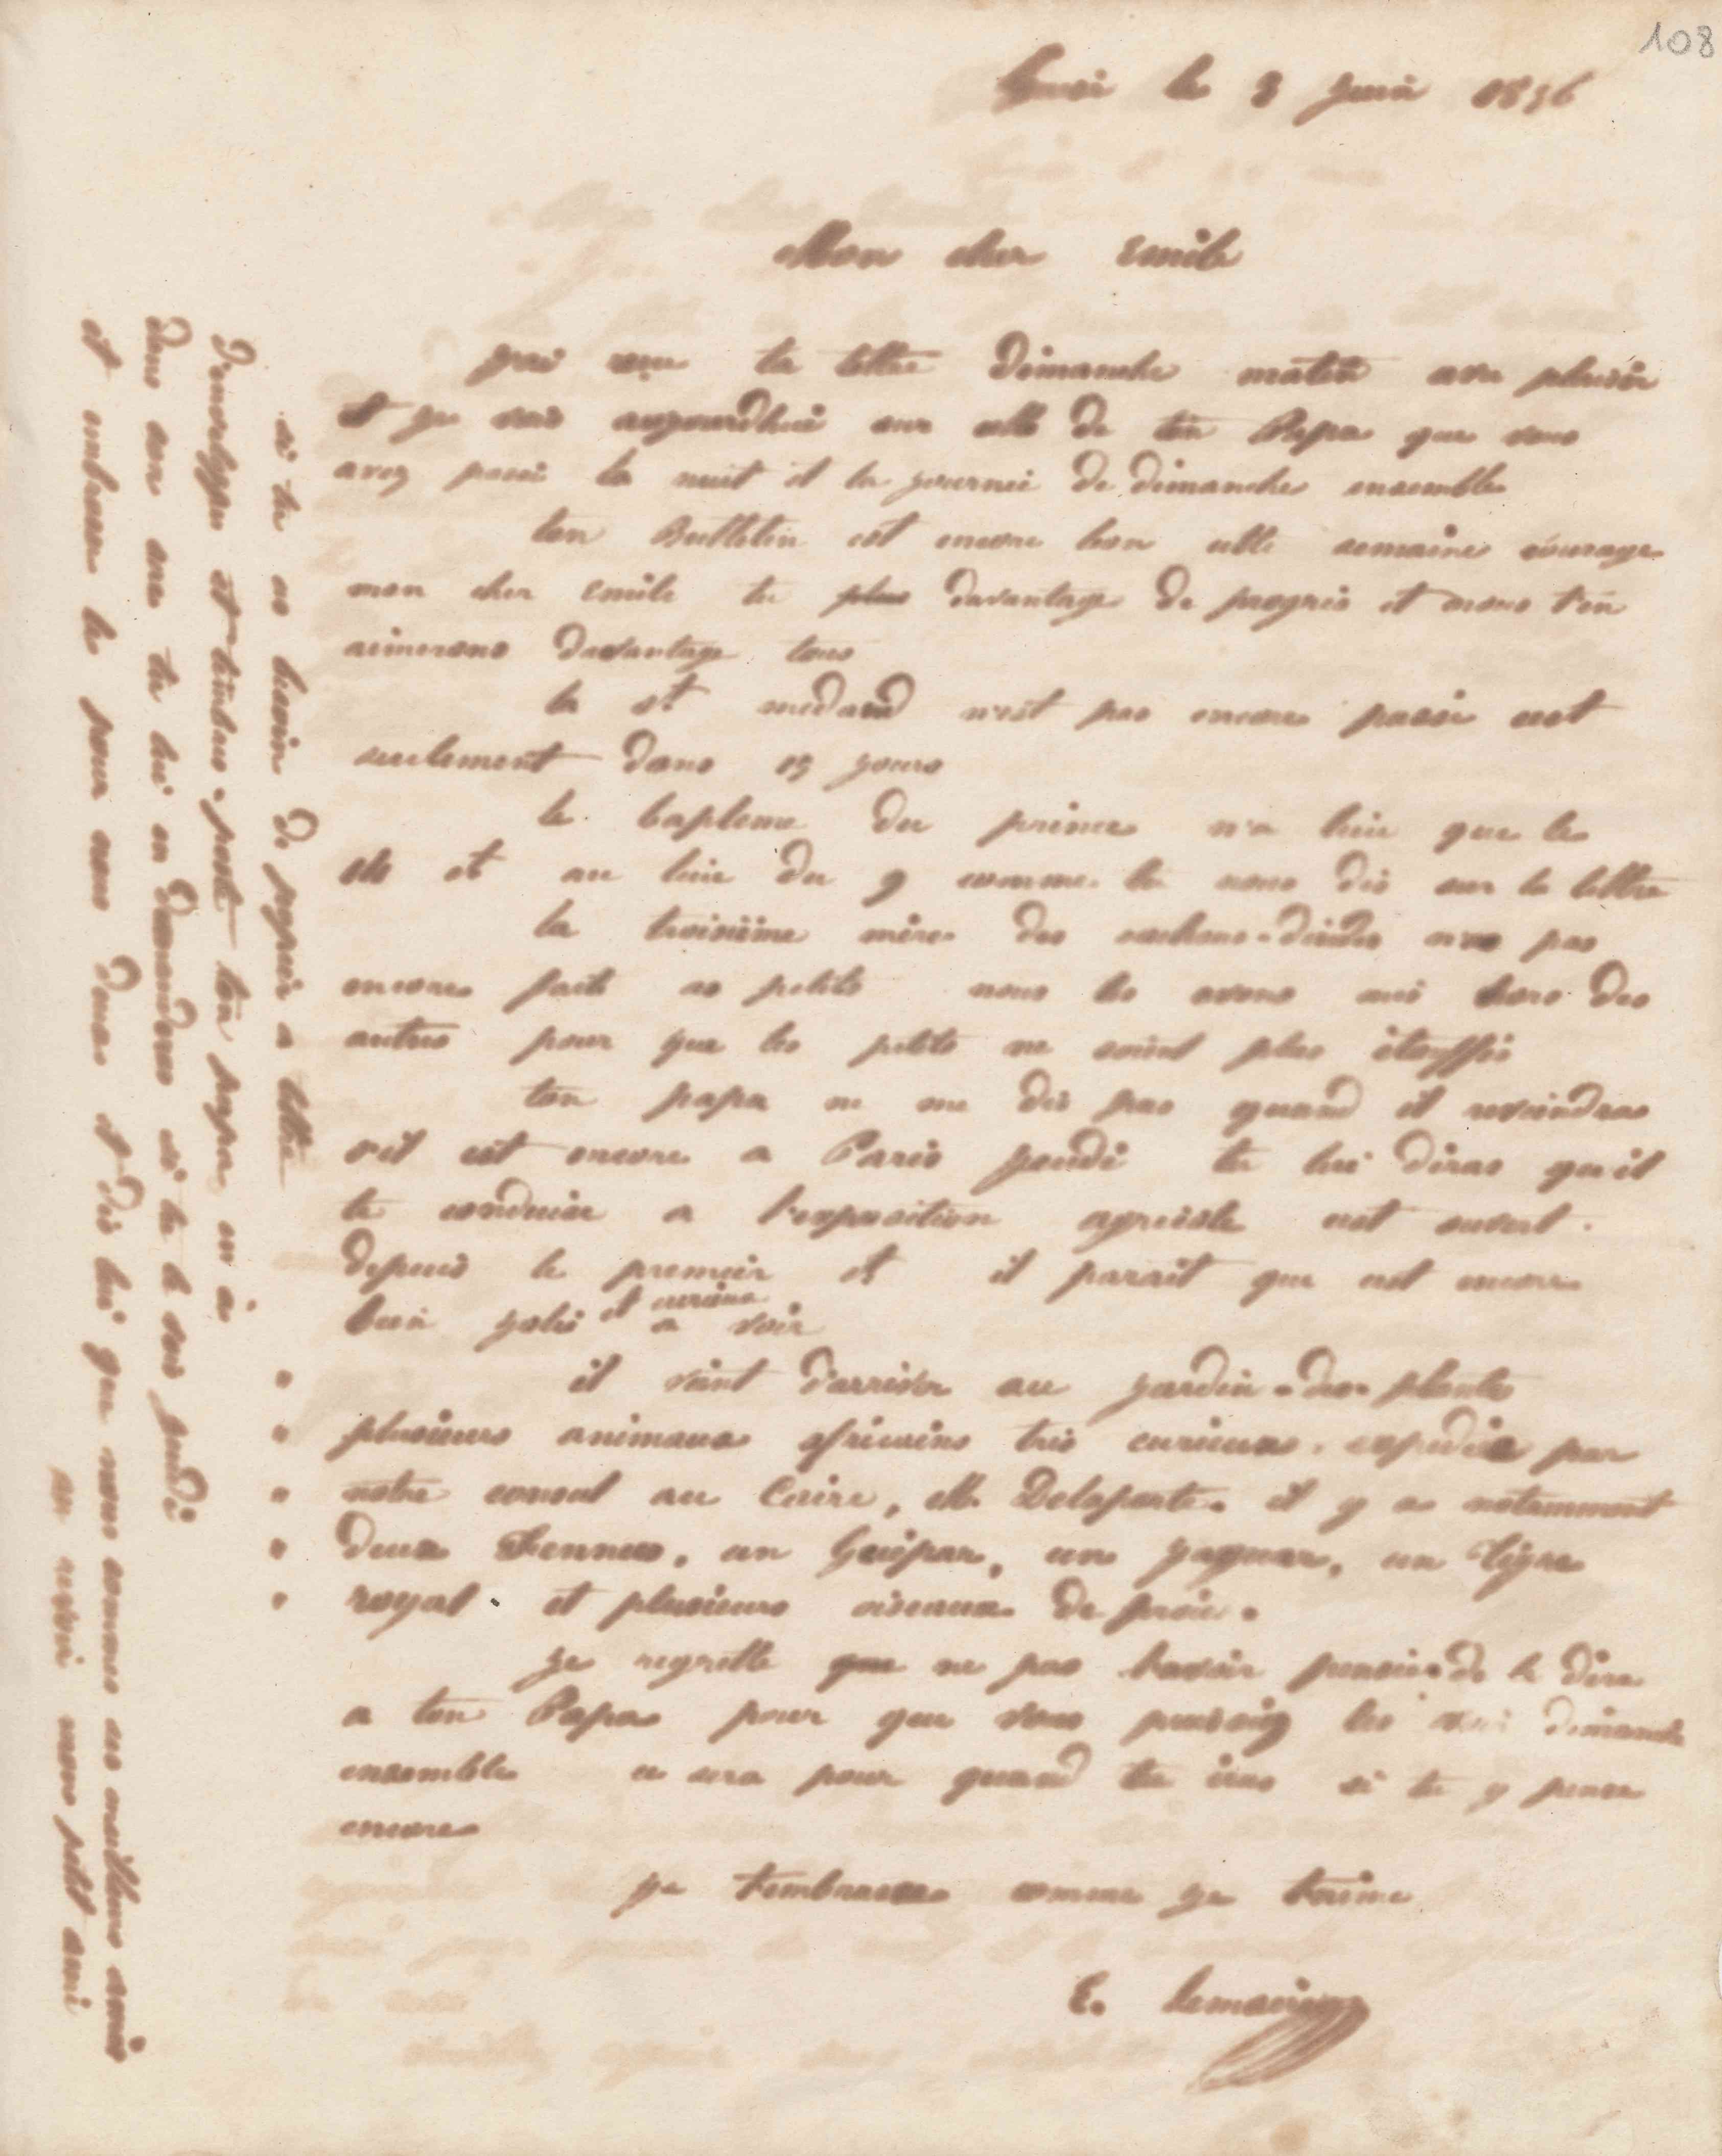 108
le 3 juin 1856
Mon cher Emile
jai reçu ta lettre Dimanche matin avec plaisir
et je vois aujourdhui sur celle de ton Papa que vous
avez passé la nuit et la journée de dimanche ensemble
ton Bulletin est encore bon cette semaine courage
mon cher Emile tu plus davantage de progrès et nous t'en
aimerons davantage tous
la St medard n'est pas encore passé cest
seulement dans jours
le bapteme du prince n'a lieu que le
14 et au lieu du 9 comme tu nous dis sur ta lettre
la troisième mère des cochons-dindes n'a pas
encore fait ses petits nous les avons mis hors des
autres pour que les petits ne soient plus étouffés
ton papa ne me dis pas quand il reviendras
s'il est encore a Paris jeudi tu lui diras qu'il
te conduise a l'exposition agricole cest ouvert.
depuis le premier et il parait que cest encore
bien joli et curieux a voir
il vient d'arriver au jardin-des-plantes
" plusieurs animaux africains très curieux. expédiés par
" notre consul au Caire, M. Delaporte. il y a notamment
" deux Fennecs, un Guépar, un jaguar, un tigre
" royal. et plusieurs oiseaux de proie.
je regrette que ne pas l'avoir pensée de le dire
a ton Papa pour que vous puissiez les voir dimanche
ensemble ce sera pour quand tu iras si tu y pense
encore
je t'embrasse comme je t'aime
E. Lemaire
si tu as besoin de papier a lettre
D'enveloppes et timbres-poste ton papa en a
dans son sac tu lui en demanderas si tu le vois jeudi
et embrasse le pour nous deux et dis lui que nous sommes ses meilleurs amis
au revoir mon petit ami